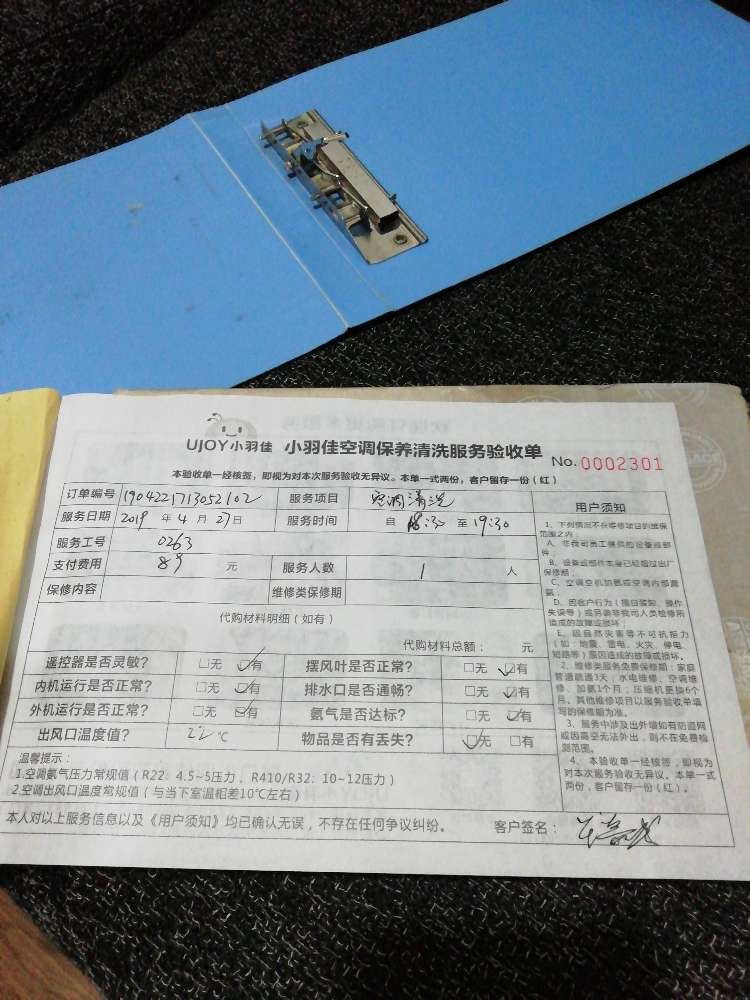 UJOY小羽佳 小羽佳空调保养清洗服务验收单 No.0002301
本验收单一经核签，即视为对本次服务验收无异议。本单一式两份，客户留存一份（红）
订单编号 1904221713052102 服务项目 空调清洗
服务日期 2019 年 4 月 27 日 服务时间 自 18:30 至 19:30
服务工号 0263
支付费用 89 元 服务人数 1 人
保修内容 维修类保修期
代购材料明细（如有）
代购材料总额： 元
遥控器是否灵敏？ □无 ☑有 摆风叶是否正常？ □无 ☑有
内机运行是否正常？ □无 ☑有 排水口是否通畅？ □无 ☑有
外机运行是否正常？ □无 ☑有 氨气是否达标？ □无 ☑有
出风口温度值？ 22 ℃ 物品是否有丢失？ ☑无 □有
温馨提示：
1.空调氨气压力常规值（R22：4.5~5压力，R410/R32：10~12压力）
2.空调出风口温度常规值（与当下室温相差10℃左右）
本人对以上服务信息以及《用户须知》均已确认无误，不存在任何争议纠纷。 客户签名：
用户须知
1、下列情况不在维修项目的维保
范围之内：
A、非我司员工提供的设备或部
件；
B、设备或部件本身已经超过出厂
保修期；
C、空调空机加氨或空调内部漏
氨；
D、因客户行为（擅自装卸、操作
失误等）或另请非我司人员检修所
造成的故障或损坏；
E、因自然灾害等不可抗拒力
（如：地震、雷电、火灾、停电、
短路等）原因造成的故障或损坏。
2、维修类服务免费保修期：家庭
管道疏通3天；水电维修、空调维
修、加氨1个月；压缩机更换6个
月。其他维修项目以服务验收单填
写的保修期为准。
3、服务中涉及出外墙如有防盗网
或因高空无法外出，则不在免费检
测范围。
4、本验收单一经核签，即视为
对本次服务验收无异议。本单一式
两份，客户留存一份（红）。